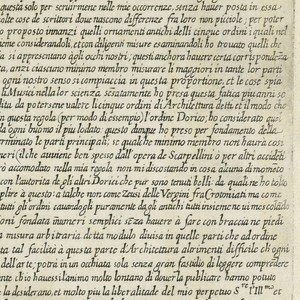 questa solo per servirmene nelle mie occorrenze, senza haver posta in essa
molte cose de scrittori dove nascono differenze fra loro non picciole; per poter
o proposto innanzi quelli ornamenti antichi delli cinque ordini i quali nel
insieme considerandoli, et con diligenti misure esaminandoli ho trovato quelli che
a si appresentano agli occhi nostri, questi anchora havere certa corrispondenza
ta, anzi ciascuno minimo membro misurare li maggiori in tante lor parti
ogni nostro senso si compiaccia in questa proportione, et le cose spia
li Musici nella lor scienza sensatamente ho presa questa fatica piu anni so
dita da potersene valere li cinque ordini di Architettura detti et il modo che
n questa regola (per modo di essempio) l'ordine Dorico, ho considerato que
da ogni huomo il piu lodato: questo dunque ho preso per fondamento della
terminando le parti principali; se qualche minimo membro non havrà cosi
neri (il che avviene ben spesso dall opera de Scarpellini ò per altri accidenti
rò accomodato nella mia regola non mi discostando in cosa alcuna di mometo
con l'autorità de gli altri Dorici che pur sono tenuti belli: da quali ne ho tolto
plire a questo: a talche non come Zeusi delle Vergini fra Crotoniati ma come
tutti gli ordini cavandogli puramente da gli antichi tutti insieme ne vi mescolado
oni fondata in numeri semplici senza havere à fare con braccia ne piedi
a misura arbitraria detta modulo divisa in quelle parti che ad ordine
ta tal facilità à questa parte d'Architettura altrimenti difficile ch' ogni
dell'arte, potrà in un'ochiata sola senza gran fastidio di leggere comprendere
nte ch'io havessi animo molto lontano di dover la publicare hanno potuto
la desiderano, et molto piu la liberalità del mio perpetuo S.re l'Ill.mo et